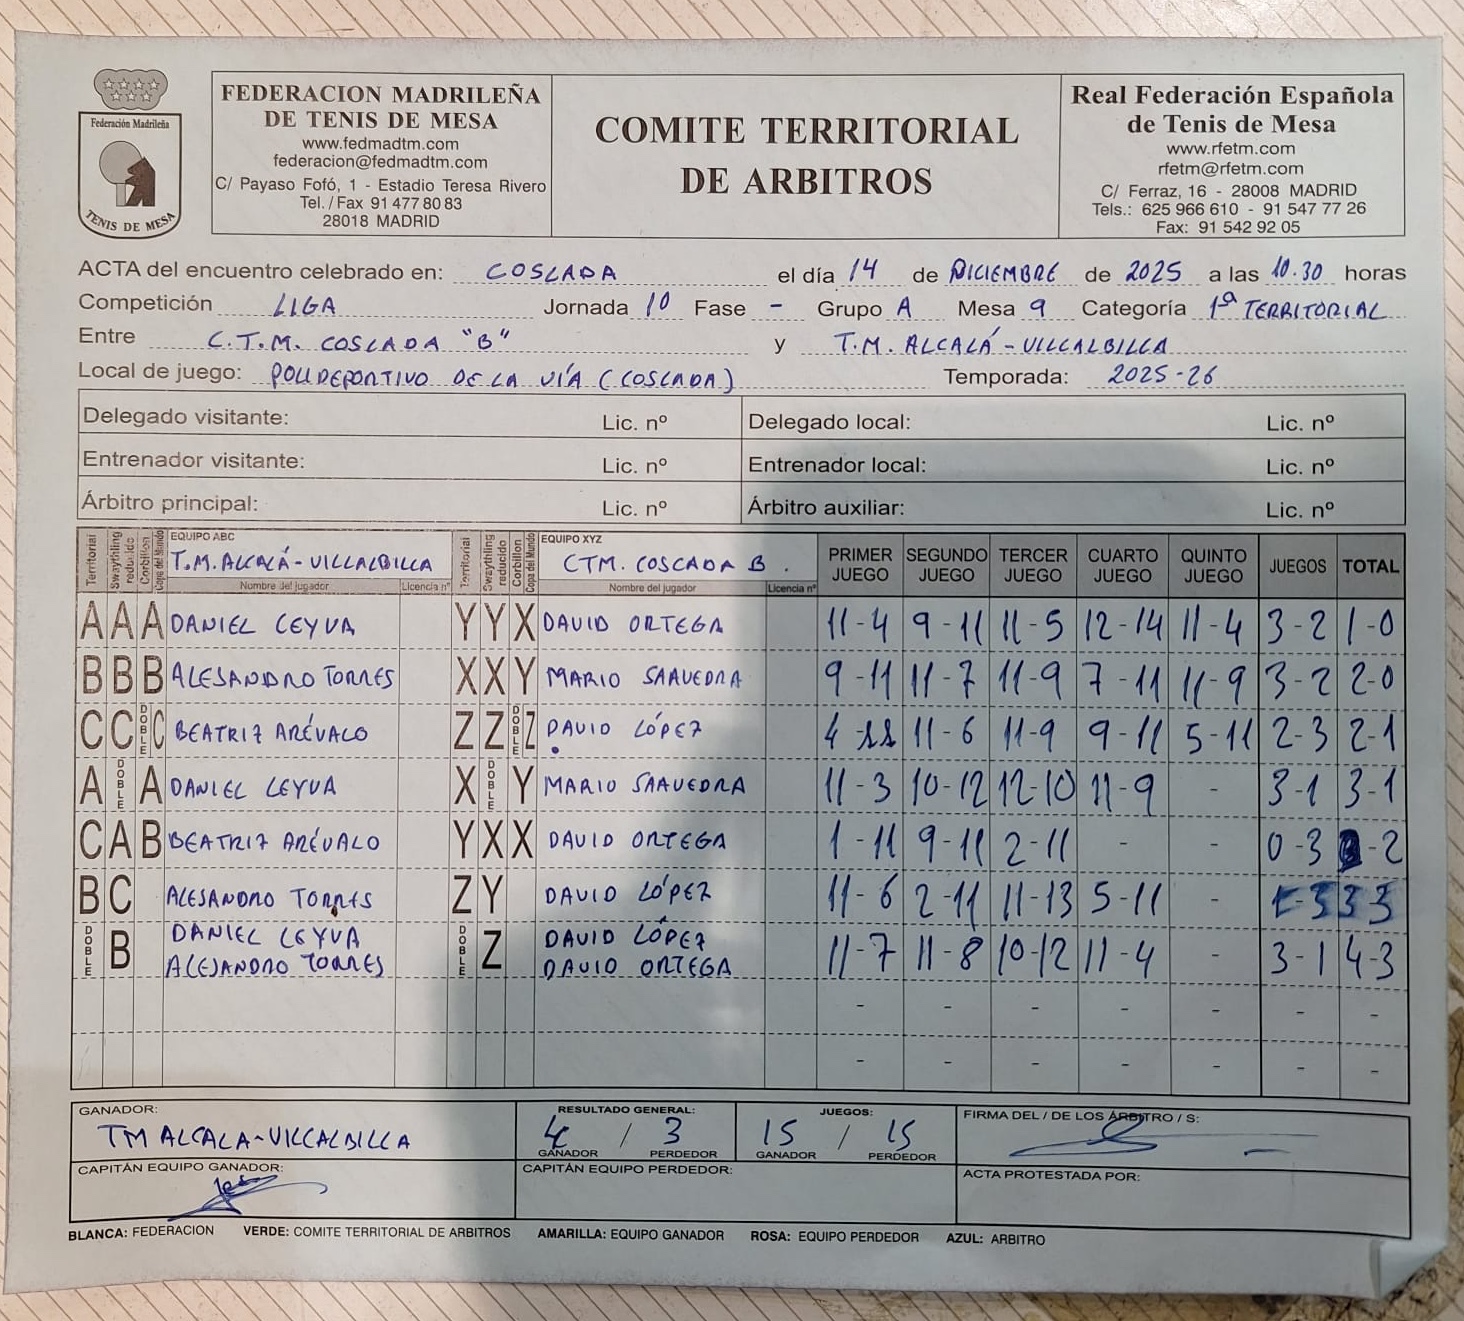 Federación Madrileña
TENIS DE MESA
FEDERACION MADRILEÑA
DE TENIS DE MESA
www.fedmadtm.com
federacion@fedmadtm.com
C/ Payaso Fofó, 1 - Estadio Teresa Rivero
Tel. / Fax 91 477 80 83
28018 MADRID
COMITE TERRITORIAL
DE ARBITROS
Real Federación Española
de Tenis de Mesa
www.rfetm.com
rfetm@rfetm.com
C/ Ferraz, 16 - 28008 MADRID
Tels.: 625 966 610 - 91 547 77 26
Fax: 91 542 92 05
ACTA del encuentro celebrado en: COSLADA el día 14 de DICIEMBRE de 2025 a las 10.30 horas
Competición LIGA Jornada 10 Fase - Grupo A Mesa 9 Categoría 1ª TERRITORIAL
Entre C.T.M. COSLADA "B" y T.M. ALCALÁ-VILLALBILLA
Local de juego: POLIDEPORTIVO DE LA VÍA (COSLADA) Temporada: 2025-26
Delegado visitante: Lic. nº Delegado local: Lic. nº
Entrenador visitante: Lic. nº Entrenador local: Lic. nº
Árbitro principal: Lic. nº Árbitro auxiliar: Lic. nº
Territorial Swaythling reducido Corbillon Copa del Mundo EQUIPO ABC T.M. ALCALÁ-VILLALBILLA Nombre del jugador Licencia nº Territorial Swaythling reducido Corbillon Copa del Mundo EQUIPO XYZ CTM. COSCADA B. Nombre del jugador Licencia nº PRIMER JUEGO SEGUNDO JUEGO TERCER JUEGO CUARTO JUEGO QUINTO JUEGO JUEGOS TOTAL
A A A DANIEL LEYVA Y Y X DAVID ORTEGA 11-4 9-11 11-5 12-14 11-4 3-2 1-0
B B B ALESANDRO TORRES X X Y MARIO SAAVEDRA 9-11 11-7 11-9 7-11 11-9 3-2 2-0
C C DOBLE C BEATRIZ ARÉVALO Z Z DOBLE Z DAVID LÓPEZ 4-11 11-6 11-9 9-11 5-11 2-3 2-1
A DOBLE A DANIEL LEYVA X DOBLE Y MARIO SAAVEDRA 11-3 10-12 12-10 11-9 - 3-1 3-1
C A B BEATRIZ ARÉVALO Y X X DAVID ORTEGA 1-11 9-11 2-11 - - 0-3 -2
B C ALESANDRO TORRES Z Y DAVID LÓPEZ 11-6 2-11 11-13 5-11 - 1-3 3 3
DOBLE B DANIEL LEYVA ALEJANDRO TORRES DOBLE Z DAVID LÓPEZ DAVID ORTEGA 11-7 11-8 10-12 11-4 - 3-1 4-3
- - -
- - -
GANADOR: TM ALCALA-VILLALBILLA RESULTADO GENERAL: 4 / 3 GANADOR PERDEDOR JUEGOS: 15 / 15 GANADOR PERDEDOR FIRMA DEL / DE LOS ÁRBITRO / S:
CAPITÁN EQUIPO GANADOR: CAPITÁN EQUIPO PERDEDOR: ACTA PROTESTADA POR:
BLANCA: FEDERACION VERDE: COMITE TERRITORIAL DE ARBITROS AMARILLA: EQUIPO GANADOR ROSA: EQUIPO PERDEDOR AZUL: ARBITRO